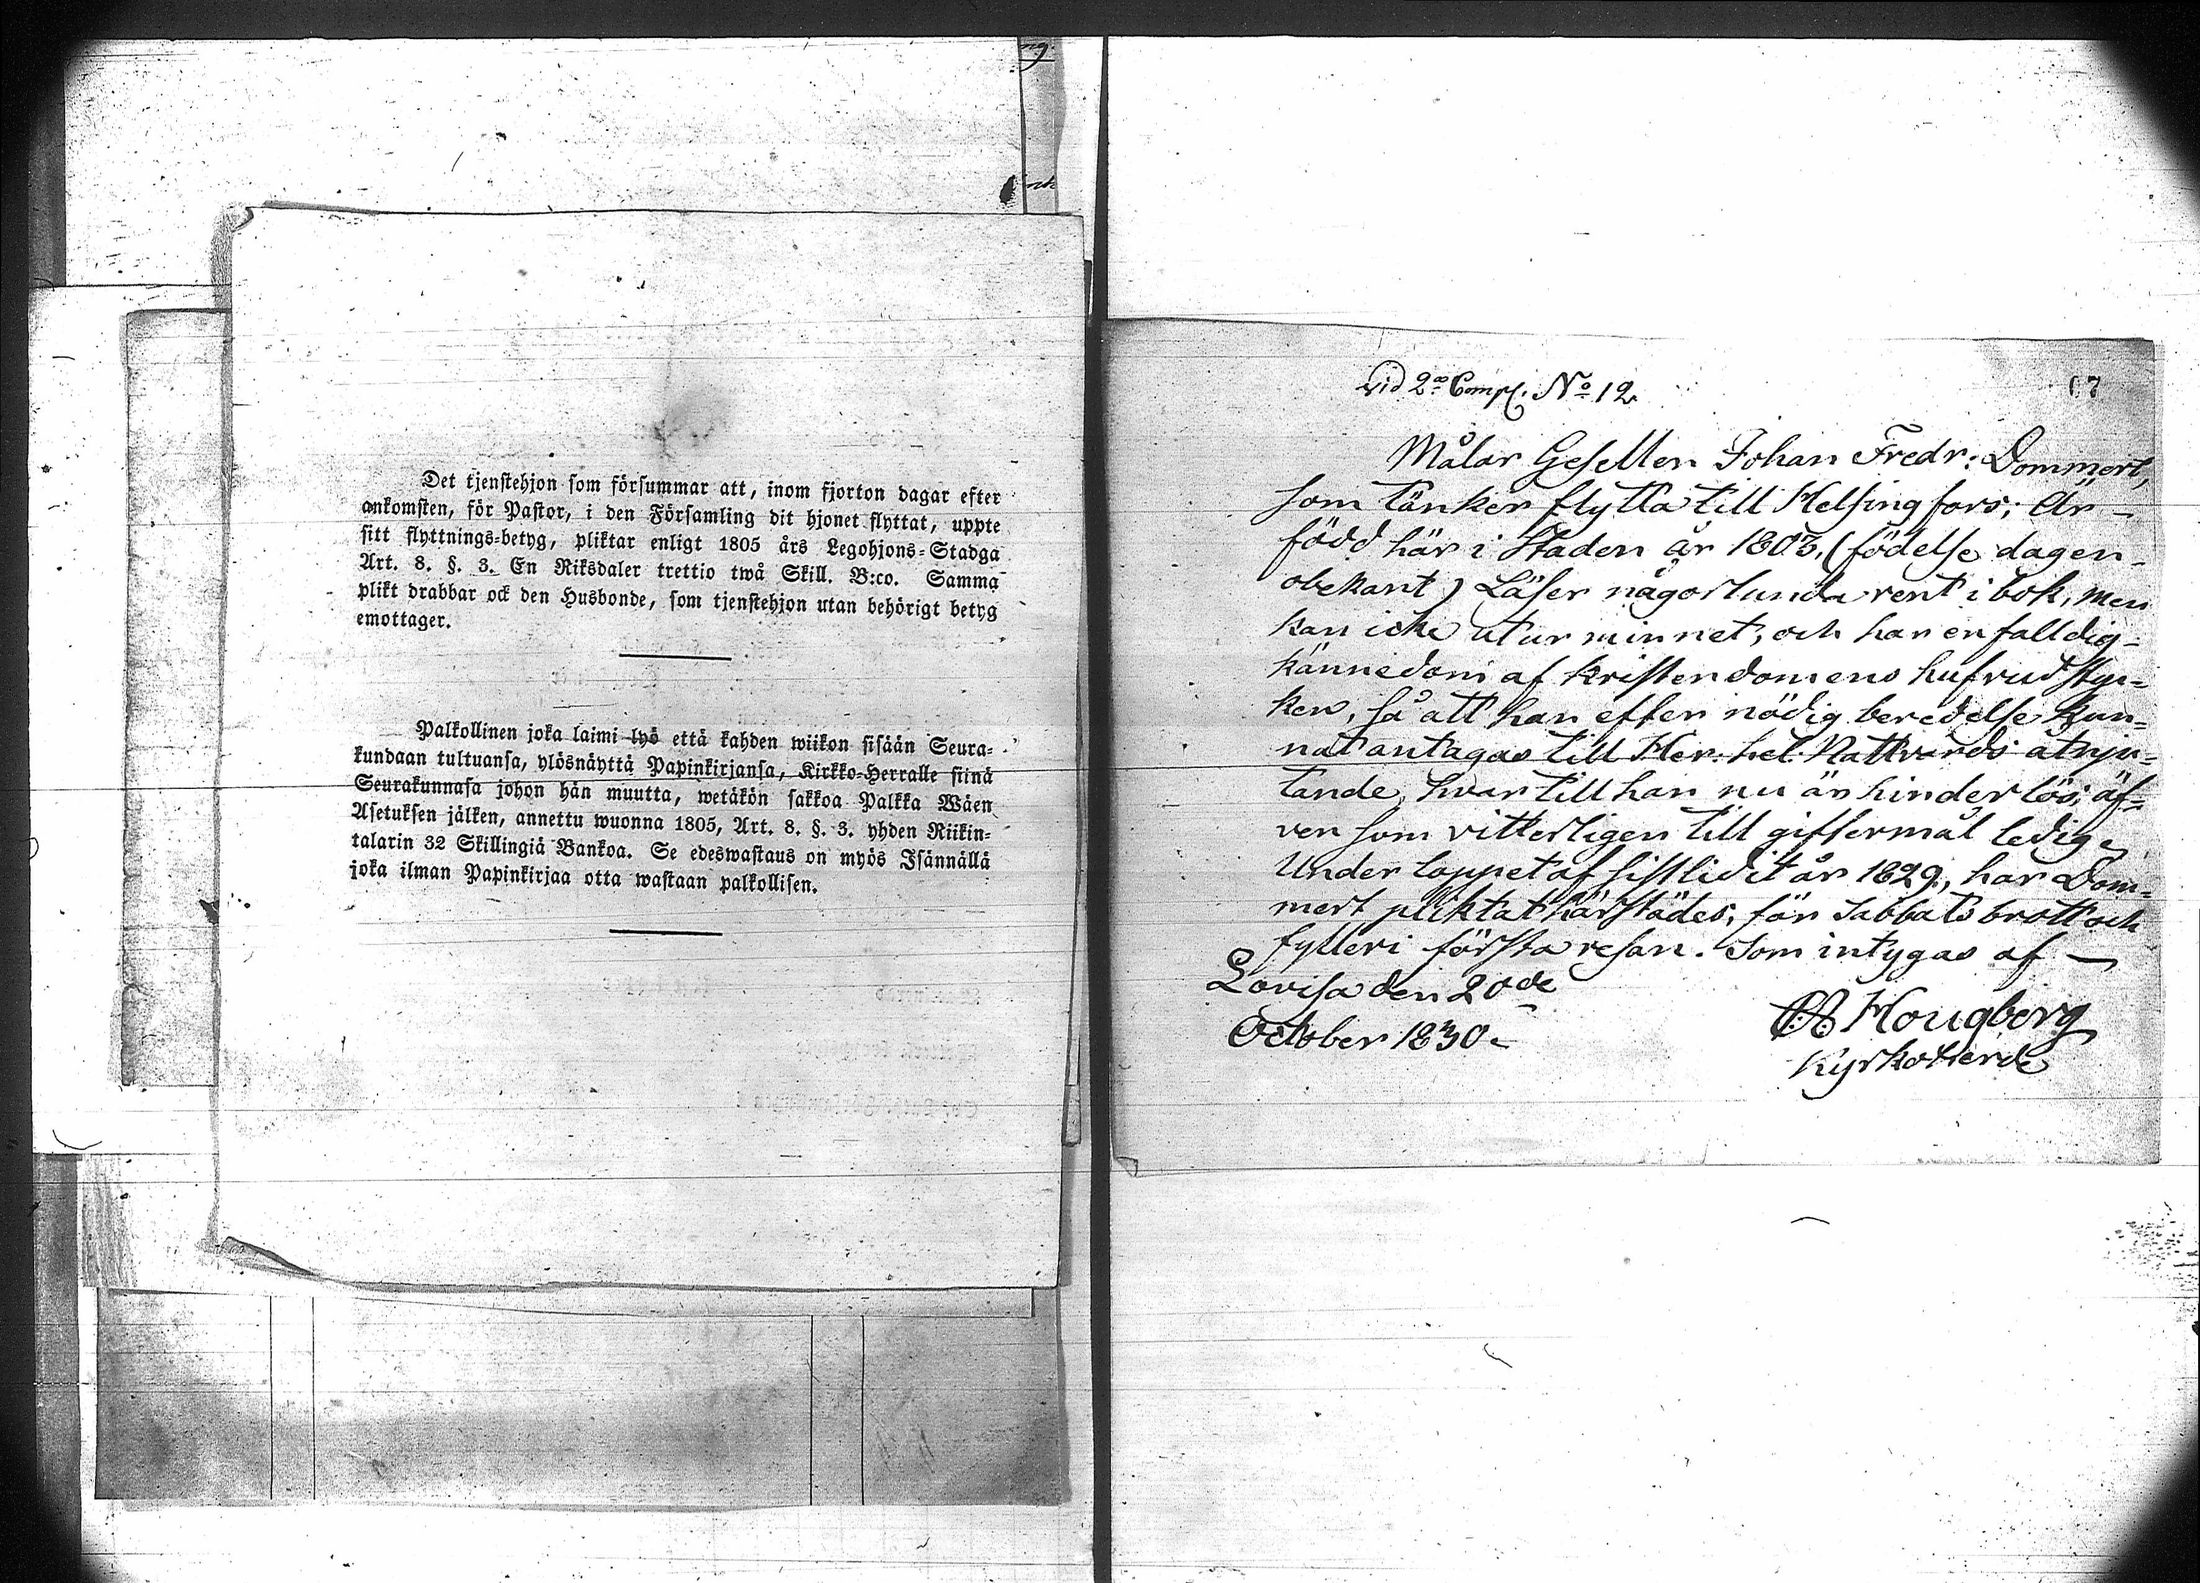 Det tjenstehjon som försummar att, inom fjorton dagar efter
ankomsten, för Pastor, i den Församling dit hjonet flyttat, uppte
sitt flyttnings-betyg, pliktar enligt 1805 års Legohjons-Stadga
Art. 8. §. 3. En Riksdaler trettio twå Skill. B:co. Samma
plikt drabbar ock den Husbonde, som tjenstehjon utan behörigt betyg
emottager.
Palkollinen joka laimi lyö että kahden wiikon sisään Seura-
kundaan tultuansa, ylösnäyttä Papinkirjansa, Kirkko-Herralle siinä
Seurakunnasa johon hän muutta, wetäkön sakkoa Palkka Wäen
Asetuksen jälken, annettu wuonna 1805, Art. 8. §. 3. yhden Riikin-
talarin 32 Skillingiä Bankoa. Se edeswastaus on myös Isännällä
joka ilman Papinkirjaa otta wastaan palkollisen.
Vid 2:a Compl. No 12
67
Målar Gesellen Johan Fredr: Dommert,
som tänker flytta till Helsingfors; Är
född här i Staden år 1803, (födelse dagen
obekant) Läser någorlunda rent i bok, men
kan icke utur minnet, och har enfalldig
kännedom af kristendomens hufvudstyc-
ken, så att han efter nödig beredelse kun-
nat antagas till Her: hel. Nattvards åtnju-
tande, hvartill han nu är hinderlös; äf-
ven som vitterligen till giftermål ledig.
Under loppet af sistlidit år 1829, har Dom-
mert pliktat härstädes, för Sabbats brott och
fylleri första resan. Som intygas af
Lovisa den 20de
October 1830.
Hougberg
KyrkoHerde